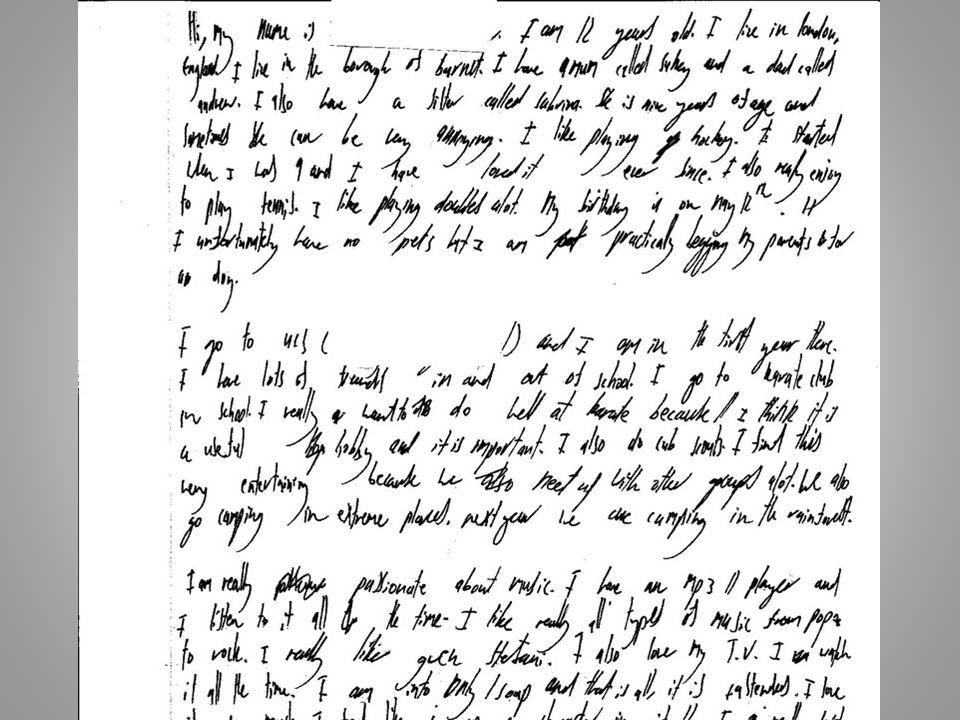 Hi, my name is . I am 12 years old. I live in london,
England I live in the borough of barnet. I have a mum called sukey and a dad called
andrew. I also have a sister called sabrina. She is nine years of age and
sometimes she can be very annoying. I like playing hockey. I started
when I was 9 and I have loved it ever since. I also really enjoy
to play tennis. I like playing doubles alot. My birthday is on may 12th.
I unfortunately have no pets but I am practically begging my parents for
a dog.
I go to ucs ( ) and I am in the first year there.
I have lots of friends in and out of school. I go to karate club
in school. I really want to do well at karate because I think it is
a useful hobby and it is important. I also do cub scouts. I find this
very entertaining because we meet up with other groups alot. We also
go camping in extreme places. next year we are camping in the rainforest.
I am really passionate about music. I have an mp3 player and
I listen to it all the time. I like really all types of music from pop
to rock. I really like gwen Stefani. I also love my T.V. I watch
it all the time. I am into only 1 soap and that is all, it is eastenders. I love